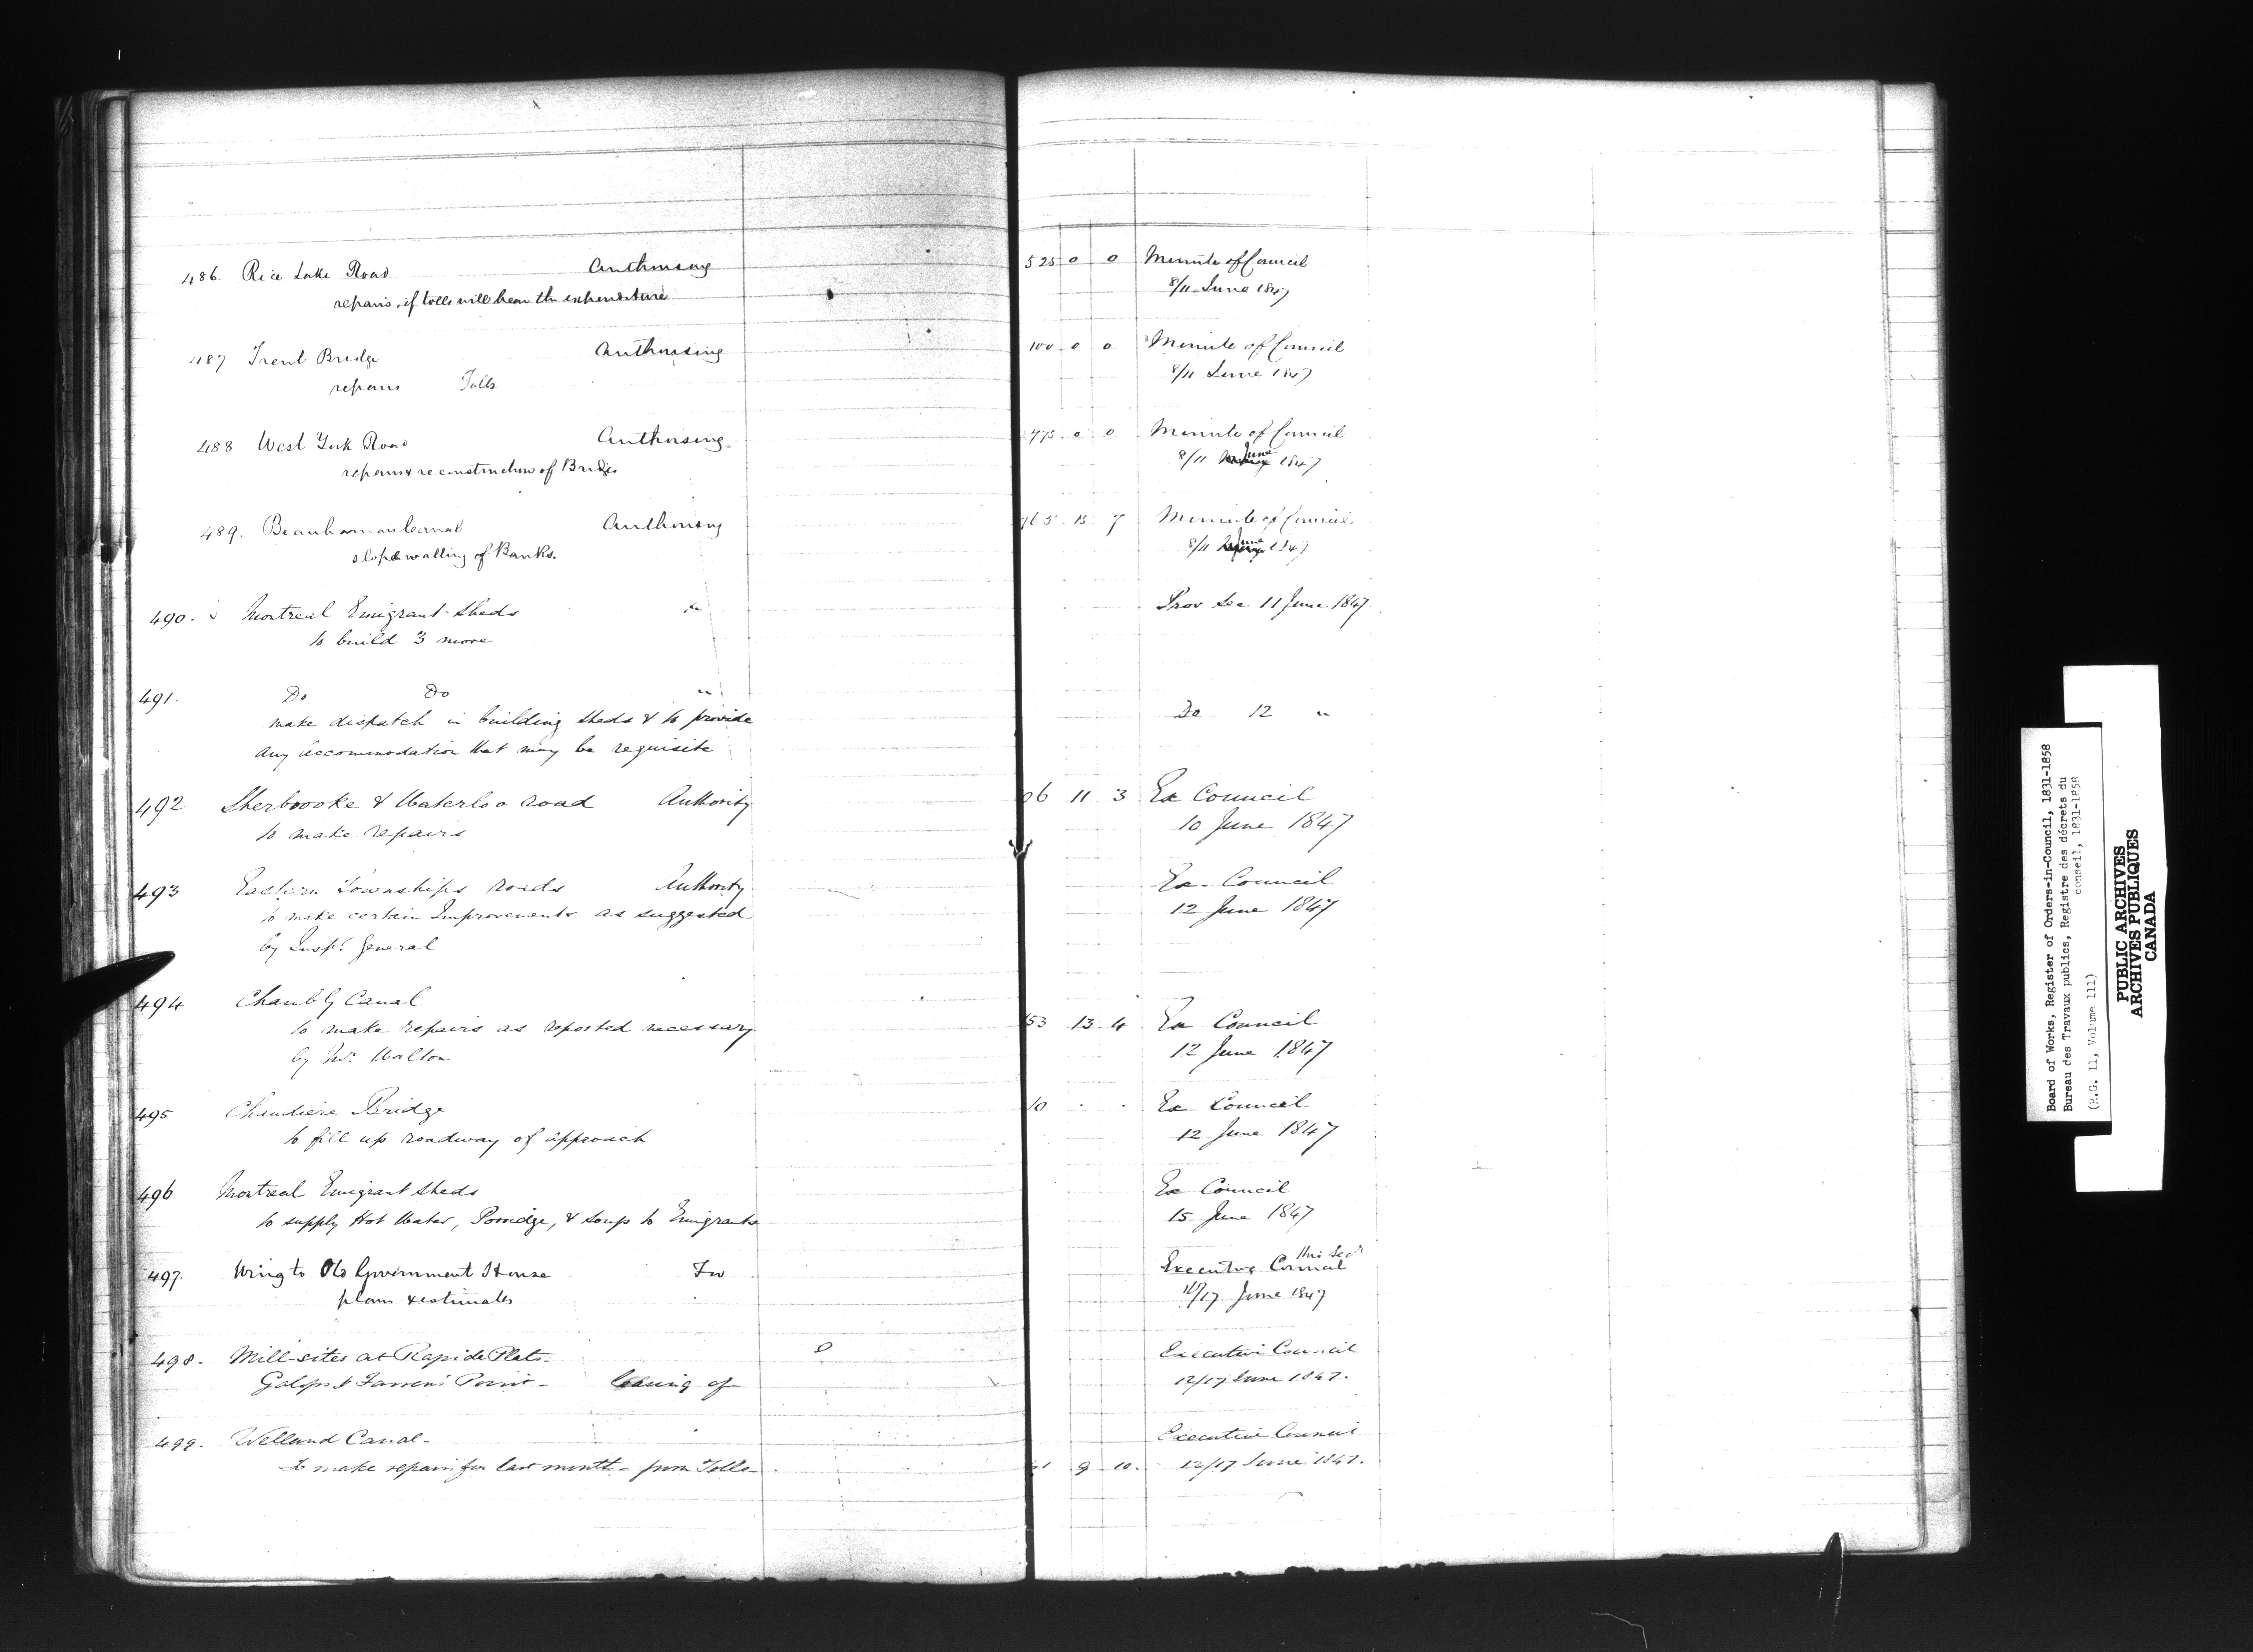 486. Rice Lake Road Authorising 525 0 0 Minute of Council
repairs, if tolls will bear the expenditure 8/11 June 1847
487 Trent Bridge Authorising 100 0 0 Minute of Council
repairs Tolls 8/11 June 1847
488 West York Road Authorising 0 0 Minute of Council
repairs & reconstruction of Bridges 8/11 June 1847
489. Beauharnois Canal Authorising 765 15 7 Minute of Council
slope walling of Banks. 8/11 June 1847
490. Montreal Emigrant Sheds " Prov Sec 11 June 1847
to build 3 more
491. Do Do " Do 12 "
make dispatch in building sheds & to provide
any accommodation that may be requisite
492 Sherbrooke & Waterloo road Authority 11 3 Ex Council
to make repairs 10 June 1847
493 Eastern Townships roads Authority Ex. Council
to make certain Improvements as suggested 12 June 1847
by Inspr. General
494 Chambly Canal
to make repairs as reported necessary 53 13 4 Ex Council
by Mr. Walton 12 June 1847
495 Chaudiere Bridge 10 . . Ex Council
to fill up roadway of approach 12 June 1847
496 Montreal Emigrant Sheds Ex Council
to supply Hot Water, Porridge, & Soup to Emigrants 15 June 1847
497. Wing to Old Government House For Executive Council
plans & estimates /17 June 1847
498- Mill-sites at Rapide Plats. Executive Council
Galops & Farren's Point- leasing of 12/17 June 1847.
499. Welland Canal- Executive Council
to make repairs for last month- from Tolls- 9 10. 12/17 June 1847.
Board of Works, Register of Orders-in-Council, 1831-1858
Bureau des Travaux publics, Registre des décrets du
conseil, 1831-1858
(R.G. 11, Volume 111)
PUBLIC ARCHIVES
ARCHIVES PUBLIQUES
CANADA